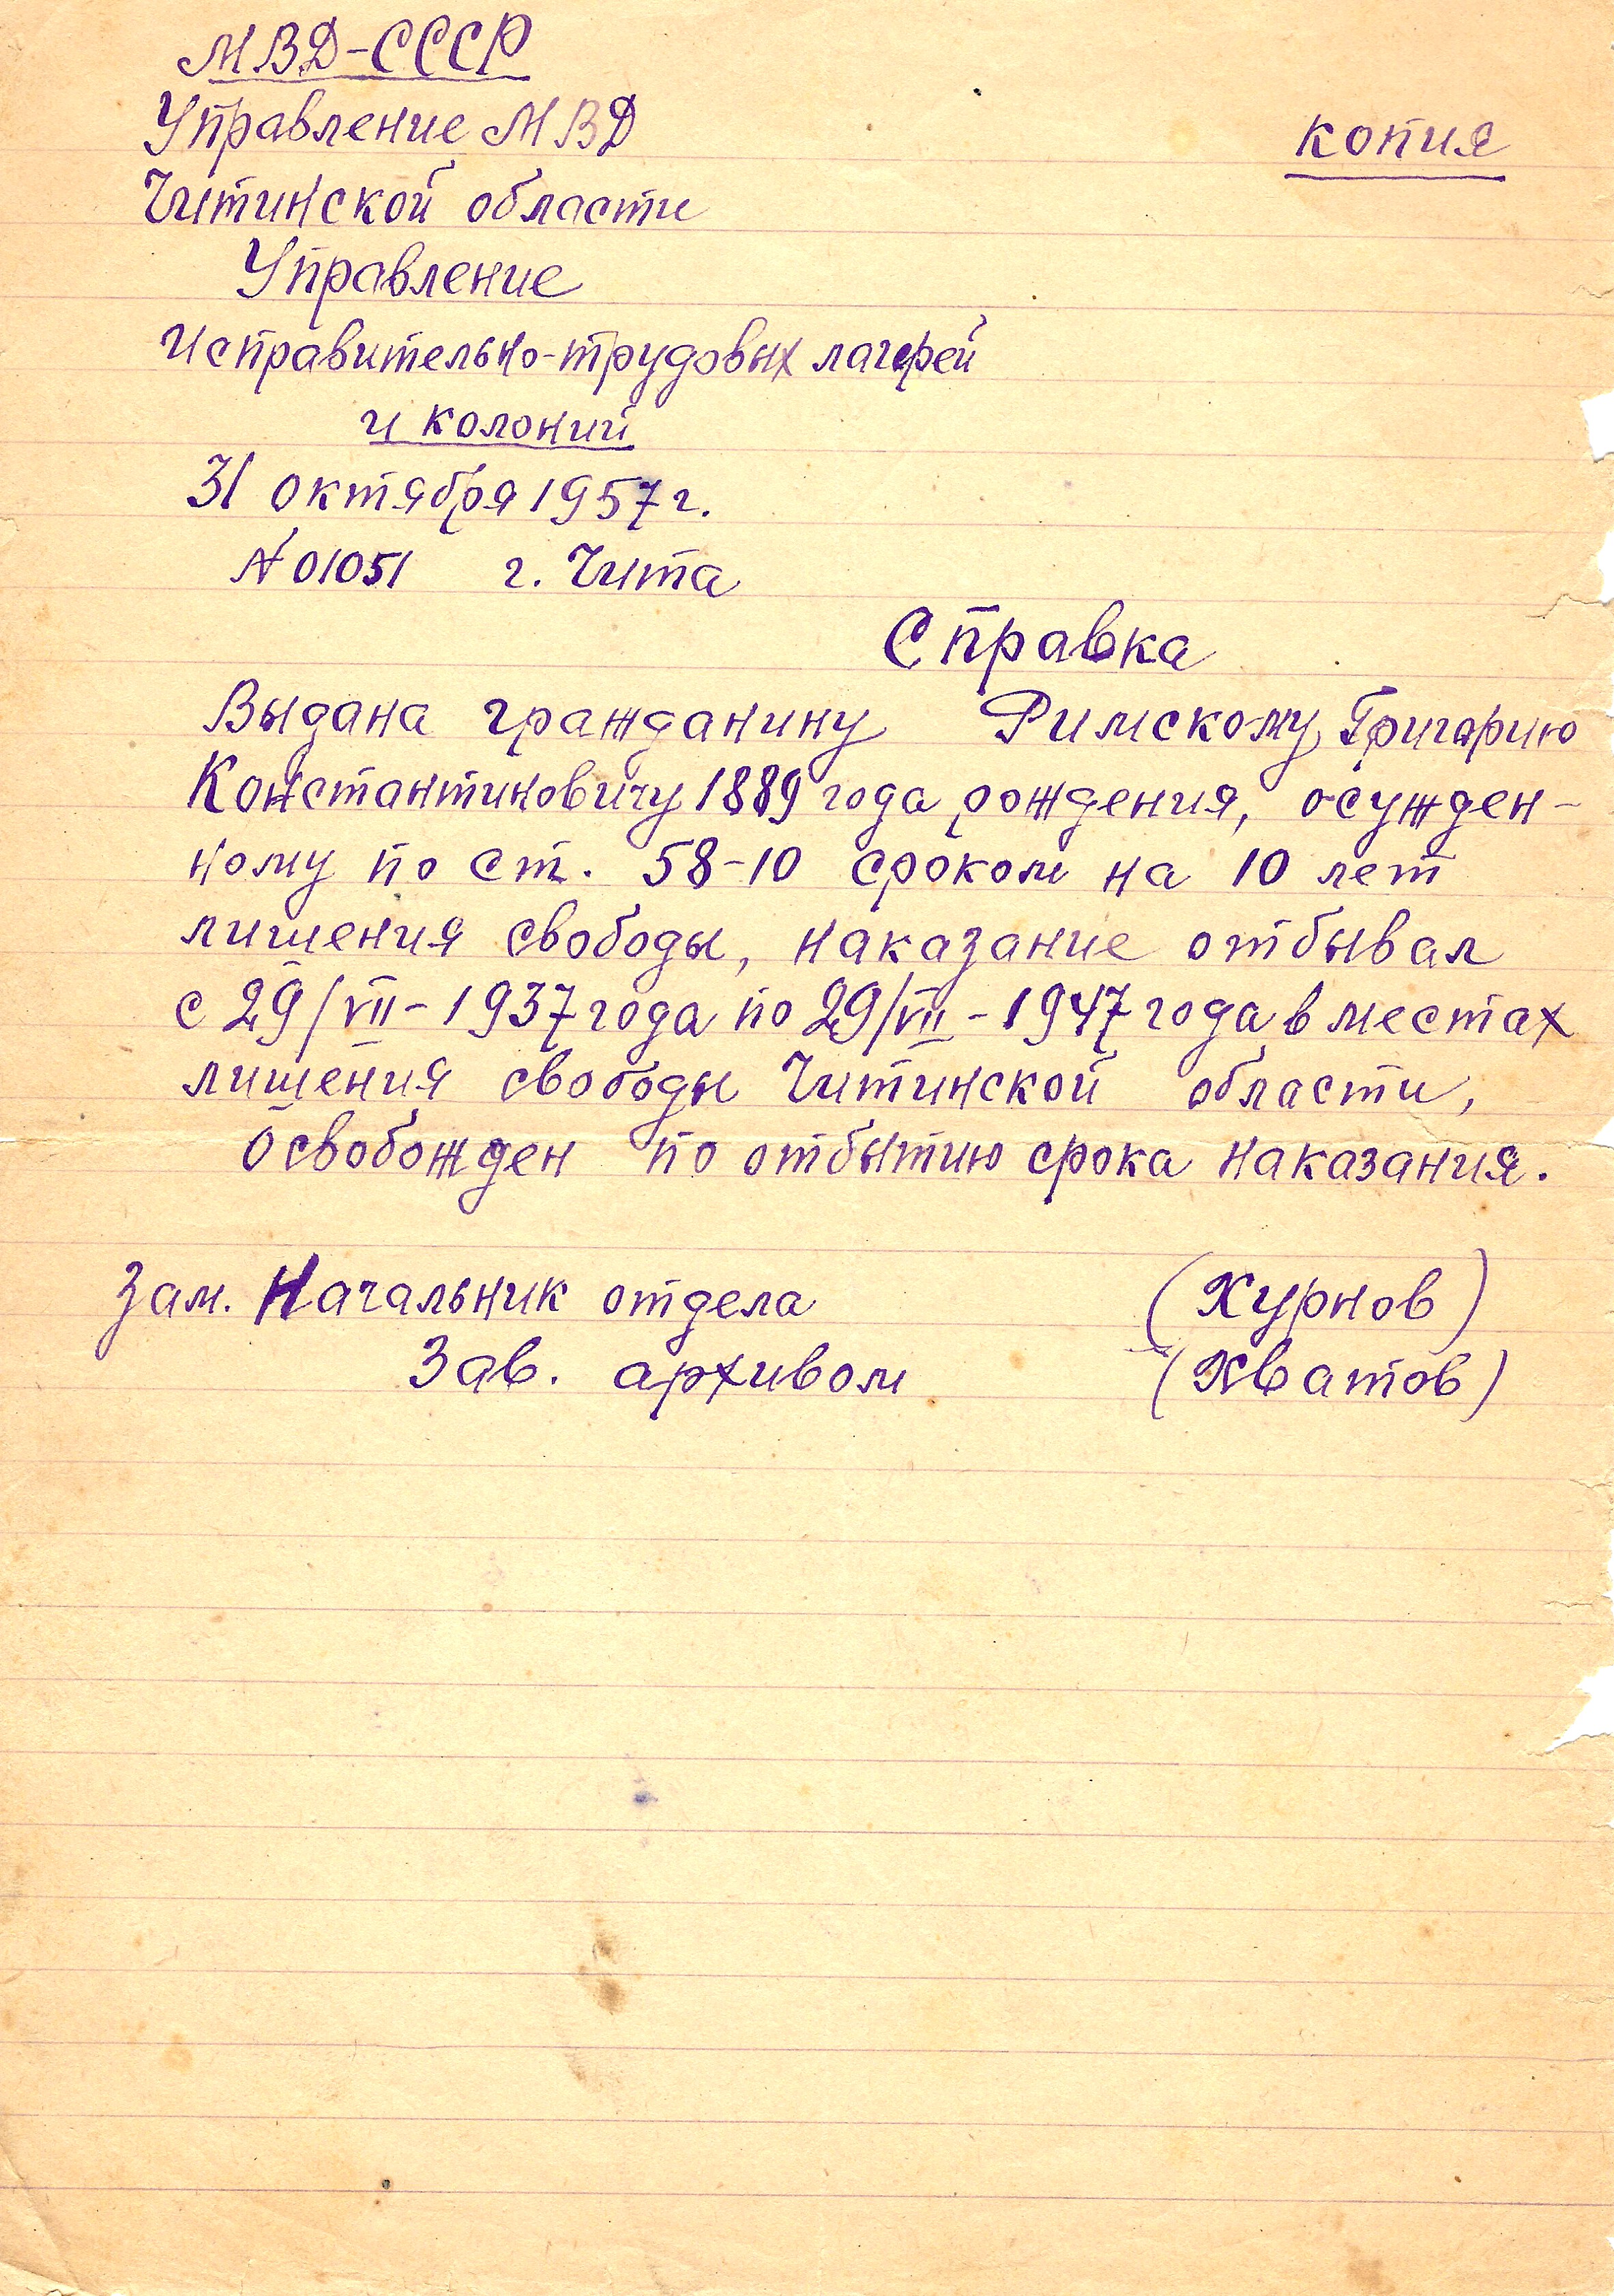 МВД-СССР
Управление МВД
копия
Читинской области
Управление
Исправительно-трудовых лагерей
и колоний
31 октября 1957 г.
N 01051 г. Чита
Справка
Выдана гражданину Римскому Григорию
Константиновичу 1889 года рождения, осужден-
ному по ст. 58-10 сроком на 10 лет
лишения свободы, наказание отбывал
с 29/VII-1937 года по 29/VII-1947 года в местах
лишения свободы Читинской области,
Освобожден по отбытию срока наказания.
Зам. Начальник отдела (Журнов)
Зав. архивом (Хватов)